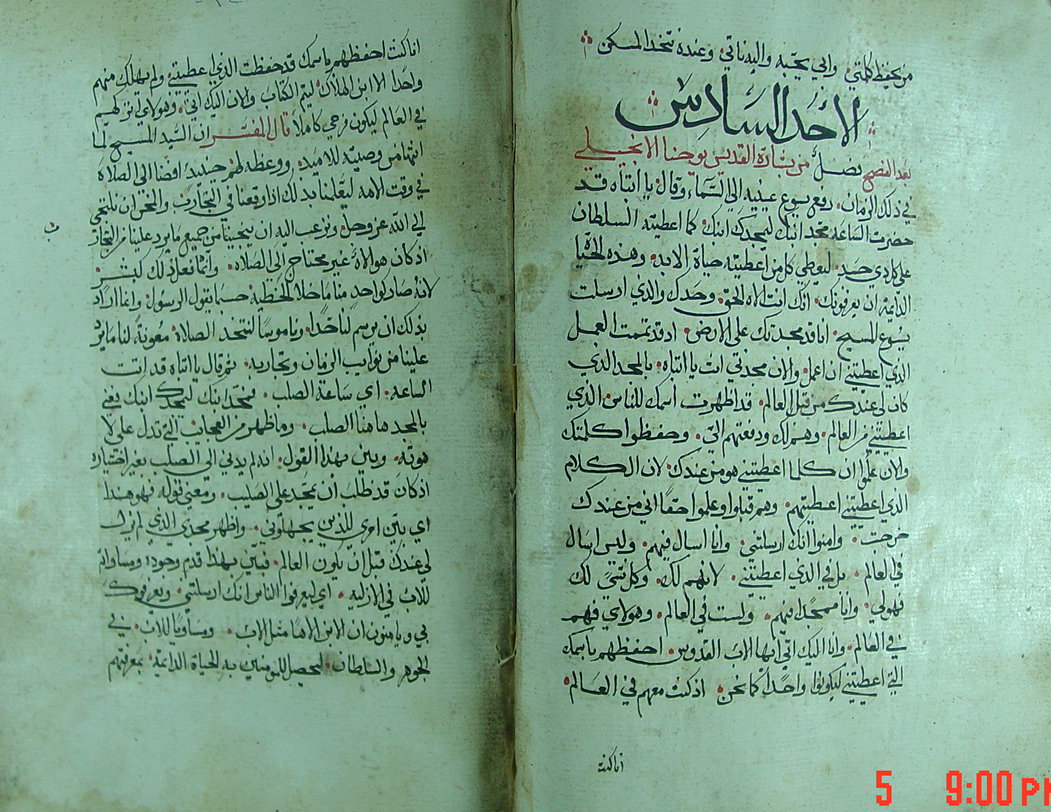 من يحفظ كلمتي وابي يحبه واليه ناتي وعنده نتخذ المسكن
الاحد السادس
بعد الفصح فصل من بشارة القديس يوحنا الانجيلي
في ذلك الزمان رفع يسوع عينيه الى السماء وقال يا ابتاه قد
حضرت الساعه مجد ابنك ليمجدك ابنك كما اعطيته السلطان
على كل ذي جسد ليعطي كل من اعطيته حياة الابد وهذه الحيا
الدايمة ان يعرفونك انك انت الاه الحق وحدك والذي ارسلت
يسوع المسيح انا قد مجدتك على الارض اذ قد تممت العمل
الذي اعطيتني ان اعمل والان مجدني انت يا ابتاه بالمجد الذي
كان لي عندك من قبل العالم قد اظهرت اسمك للناس الذي
اعطيتني من العالم وهم لك ودفعتهم الي وحفظوا كلمتك
والان علموا ان كلما اعطيتني هو من عندك لان الكلام
الذي اعطيتني اعطيتهم وهم قبلوا وعلموا حقا اني من عندك
خرجت وامنوا انك ارسلتني وانا اسال فيهم وليس اسال
في العالم بل في الذي اعطيتني لانهم لك وكل شي لك
فهو لي وانا ممجد فيهم ولست في العالم وهولاي فهم
في العالم وانا اليك اتي ايها الاب القدوس احفظهم باسمك
التي اعطيتني ليكونوا واحدا كما نحن اذ كنت معهم في العالم
انا كنت
انا كنت احفظهم باسمك قد حفظت الذي اعطيتني ولم يهلك منهم
واحد الا ابن الهلاك ليتم الكتاب والان اليك اتي وهولاي تركتهم
في العالم ليكون فرحي كاملا قال المفسر ان السيد المسيح لما
انتها من وصيته للتلاميد ووعظه لهم حينئذ افضا الى الصلاة
في وقت الامه ليعلمنا بذلك اذا وقعنا في التجارب والمحن ان نلتجي
الى الله عز وجل ونرغب اليه ان ينجينا من جميع ما يرد علينا من التجارب
اذ كان هو لانه غير محتاج الى الصلاه وانما فعل ذلك كبشر
لانه صار كواحد منا ما خلا الخطية حسبما يقول الرسول وانما اراد
بذلك ان يرسم لنا حدا وناموسا لنتخذ الصلاة معونة لنا مما يرد
علينا من نوايب الزمان وتجاربه ثم قال يا ابتاه قد اتت
الساعه اي ساعة الصلب فمجد ابنك ليمجدك ابنك يعني
بالمجد هاهنا الصلب وما ظهر من العجايب التي تدل على لا
هوته وبين بهذا القول انه لم يدني الى الصلب بغير اختياره
اذ كان قد طلب ان يمجد على الصليب ومعنى قوله فهو هذا
اي بين امري للذين يجهلوني واظهر مجدي الذي لم يزل
لي عندك قبل ان يكون العالم فبين بهذا قدم وجوده ومساواته
للاب في الازليه اي ليعرفوا الناس انك ارسلتني ويعرفوك
بي ويامنون ان الابن الاها مثل الاب ومساويا للاب في
الجوهر والسلطان ليحصل للمومنين به الحياة الدايمة بمعرفتهم
5 9:00 PM